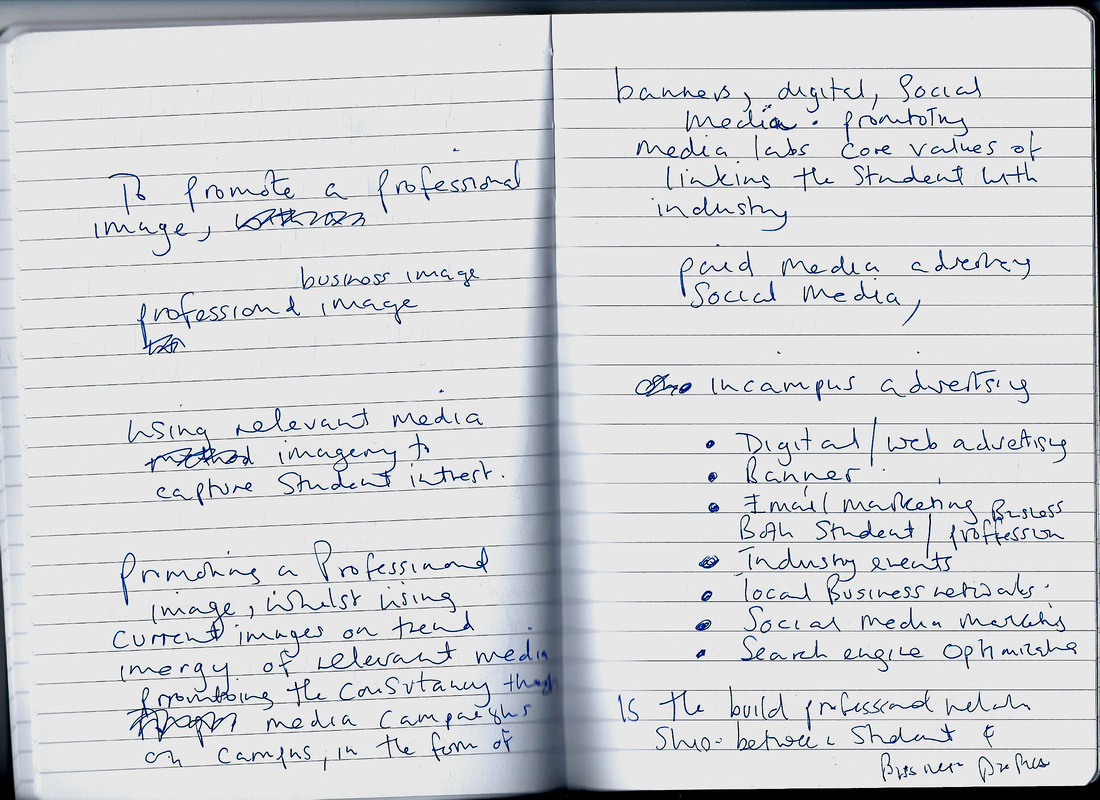 To promote a professional
image,
business image
professional image
Using relevant media
imagery to
capture Student intrest.
Promoting a Professional
image, whilst using
current images on trend
imergy of relevant media
promoting the consutancy
media campaighs
on campus, in the form of
banners, digital, Social
media. promoting
media labs core values of
linking the Student with
industry
paid media
Social media,
incampus advertsing
• Digital/web advetisg
• Banner
• Email marketing Business
Both Student/proffession
• Industry events
• local Business networks.
• Social media
• Search engine
Is the build professional
Ship. between Student &